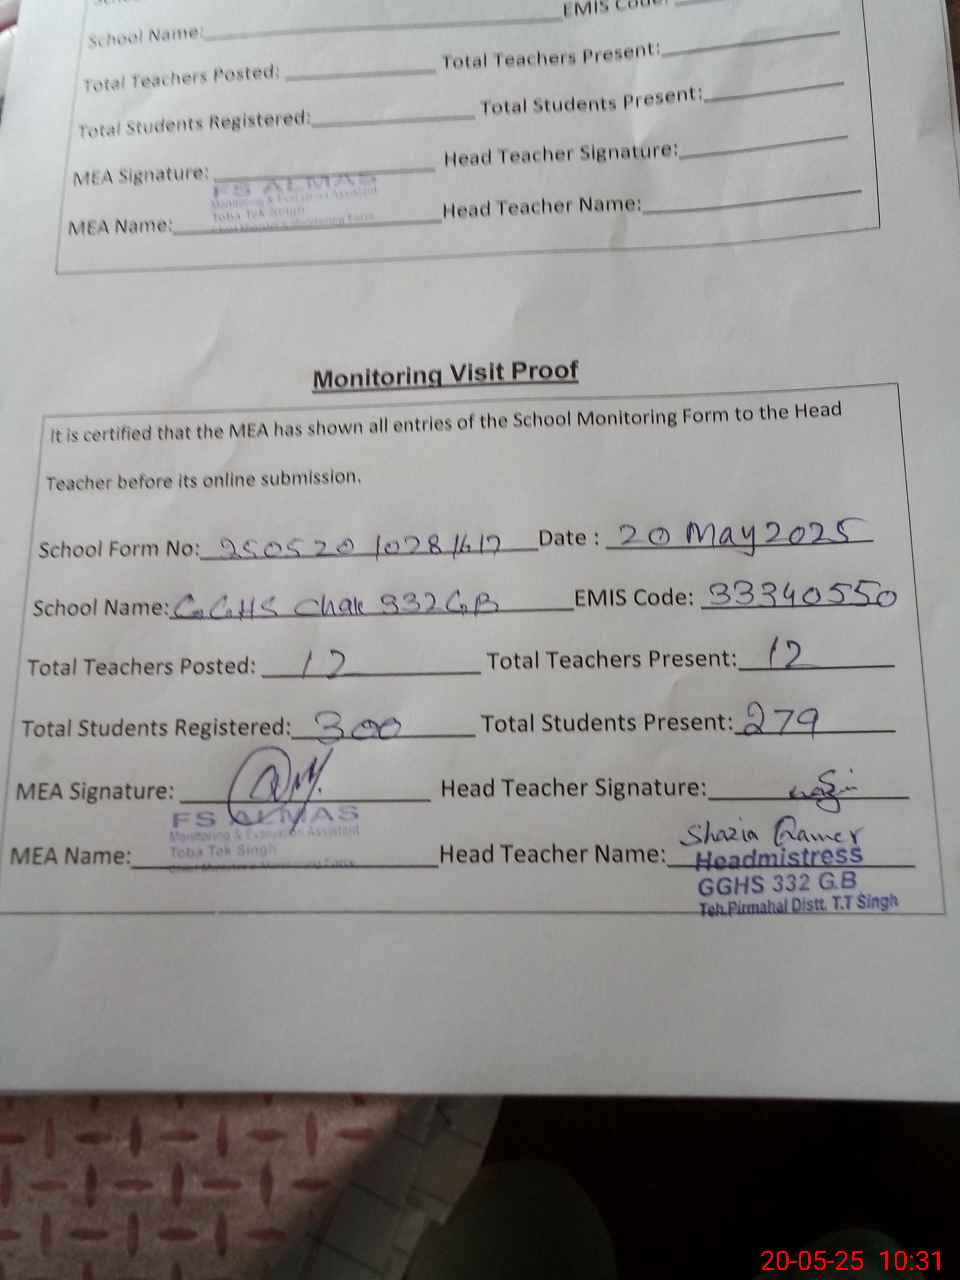 EMIS Code:
School Name:
Total Teachers Posted: Total Teachers Present:
Total Students Registered: Total Students Present:
MEA Signature: Head Teacher Signature:
FS ALMAS
Monitoring & Evaluation Assistant
Toba Tek Singh
MEA Name: Head Teacher Name:
Monitoring Visit Proof
It is certified that the MEA has shown all entries of the School Monitoring Form to the Head
Teacher before its online submission.
School Form No: Date : 20 May 2025
School Name: G.GHS Chak 332 GB EMIS Code: 33340550
Total Teachers Posted: 12 Total Teachers Present: 12
Total Students Registered: 300 Total Students Present: 279
MEA Signature: Head Teacher Signature:
FS ALMAS
Monitoring & Evaluation Assistant
Toba Tek Singh
Shazia Qamer
MEA Name: Head Teacher Name:
Headmistress
GGHS 332 G.B
Teh.Pirmahal Distt. T.T Singh
20-05-25 10:31